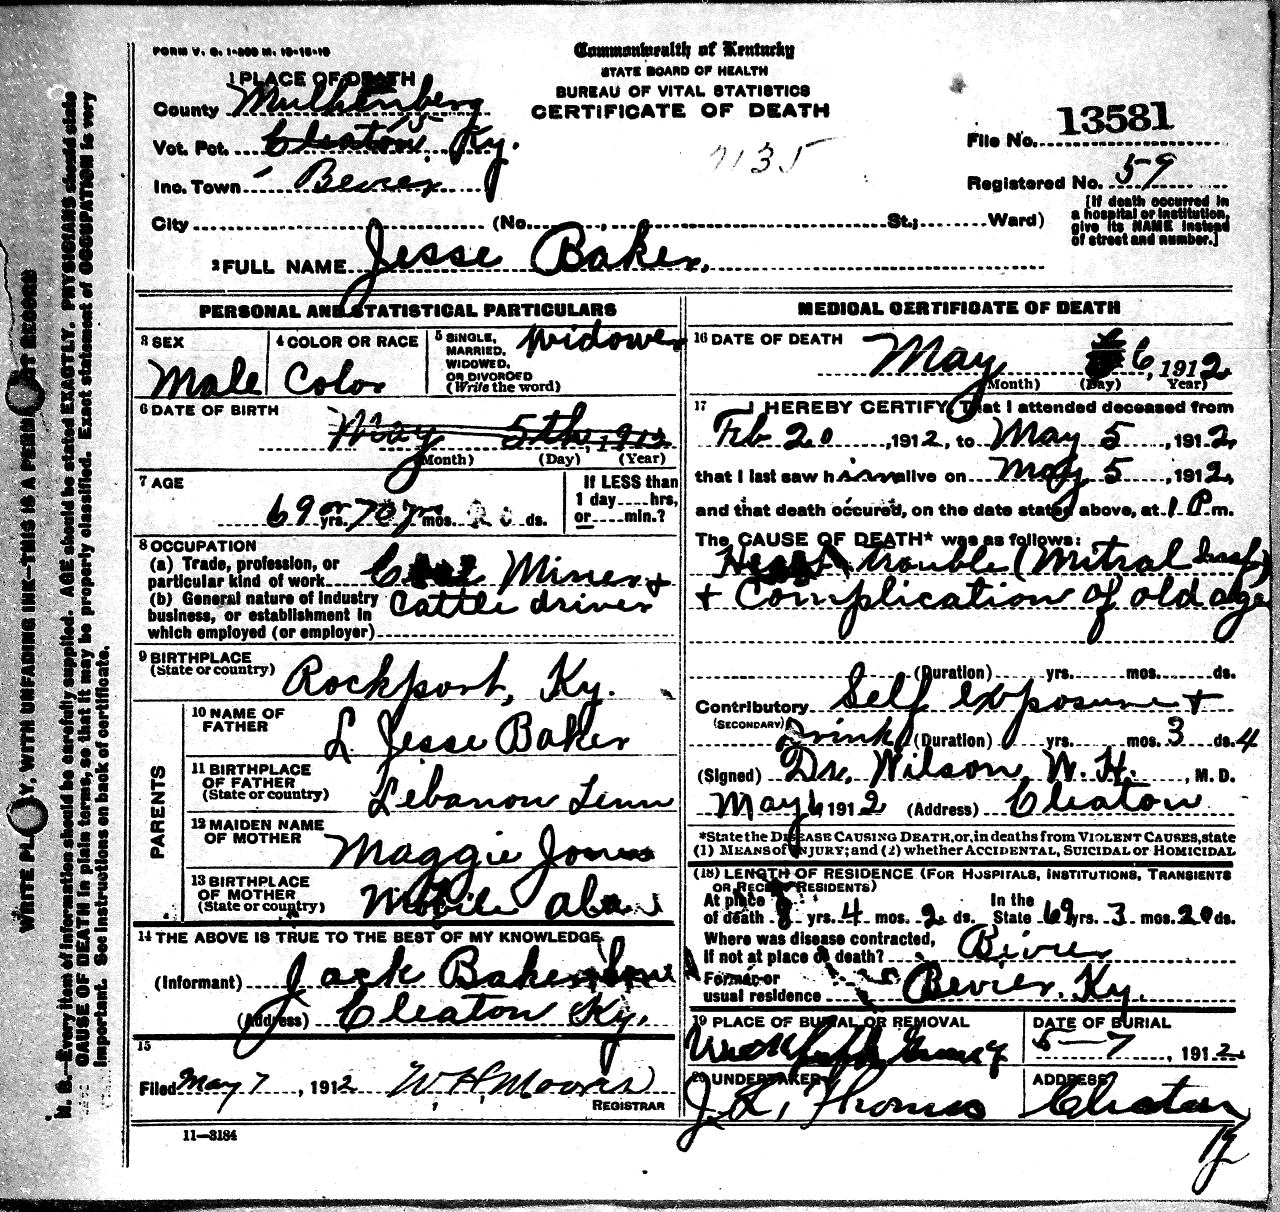 FORM V. S. 1-300 M. 10-16-10
Commonwealth of Kentucky
STATE BOARD OF HEALTH
BUREAU OF VITAL STATISTICS
CERTIFICATE OF DEATH
1 PLACE OF DEATH
County Muhlenberg
Vot. Pct. Cleaton, Ky.
Inc. Town Bevier
City (No. St.; Ward)
7135
File No. 13581
Registered No. 59
[If death occurred in
a hospital or institution,
give its NAME instead
of street and number.]
2 FULL NAME Jesse Baker.
PERSONAL AND STATISTICAL PARTICULARS
3 SEX
Male
4 COLOR OR RACE
Color
5 SINGLE,
MARRIED,
WIDOWED,
OR DIVORCED
(Write the word)
Widower
6 DATE OF BIRTH
May 5th, 1912
(Month) (Day) (Year)
7 AGE
69 or 70 yrs. mos. ds.
If LESS than
1 day hrs,
or min.?
8 OCCUPATION
(a) Trade, profession, or
particular kind of work Miner +
(b) General nature of industry
business, or establishment in
which employed (or employer)
Cattle driver
9 BIRTHPLACE
(State or country)
Rockport, Ky.
PARENTS
10 NAME OF
FATHER
Jesse Baker
11 BIRTHPLACE
OF FATHER
(State or country)
Lebanon Tenn
12 MAIDEN NAME
OF MOTHER
Maggie Jones
13 BIRTHPLACE
OF MOTHER
(State or country)
Mobile Aba
14 THE ABOVE IS TRUE TO THE BEST OF MY KNOWLEDGE
(Informant) Jack Baker
(Address) Cleaton Ky.
15
Filed May 7, 1912 W H Moores
REGISTRAR
11—3184
MEDICAL CERTIFICATE OF DEATH
16 DATE OF DEATH
May 6, 1912
(Month) (Day) Year)
17 I HEREBY CERTIFY, That I attended deceased from
Feb 20, 1912, to May 5, 1912,
that I last saw him alive on May 5, 1912,
and that death occured, on the date stated above, at 1 P. m.
The CAUSE OF DEATH* was as follows:
Heart trouble (Mitral Insf)
+ Complication of old age
(Duration) yrs. mos. ds.
Contributory Self exposure +
(SECONDARY)
Drink (Duration) yrs. mos. 3 ds. 4
(Signed) Dr. Wilson W. H., M. D.
May 6 1912 (Address) Cleaton
*State the DISEASE CAUSING DEATH, or, in deaths from VIOLENT CAUSES, state
(1) MEANS of INJURY; and (2) whether ACCIDENTAL, SUICIDAL or HOMICIDAL
(18) LENGTH OF RESIDENCE (FOR HOSPITALS, INSTITUTIONS, TRANSIENTS
OR RECENT RESIDENTS)
At place In the
of death 8 yrs. 4 mos. 2 ds. State 69 yrs. 3 mos. 20 ds.
Where was disease contracted,
If not at place of death? Bivier
Former or
usual residence Bevier, Ky.
19 PLACE OF BURIAL OR REMOVAL
DATE OF BURIAL
5—7, 1912
20 UNDERTAKER
J. L. Thomas
ADDRESS
Cleaton
WRITE PLAINLY, WITH UNFADING INK—THIS IS A PERMANENT RECORD
N. B.—Every item of information should be carefully supplied. AGE should be stated EXACTLY. PHYSICIANS should state
CAUSE OF DEATH in plain terms, so that it may be properly classified. Exact statement of OCCUPATION is very
important. See instructions on back of certificate.